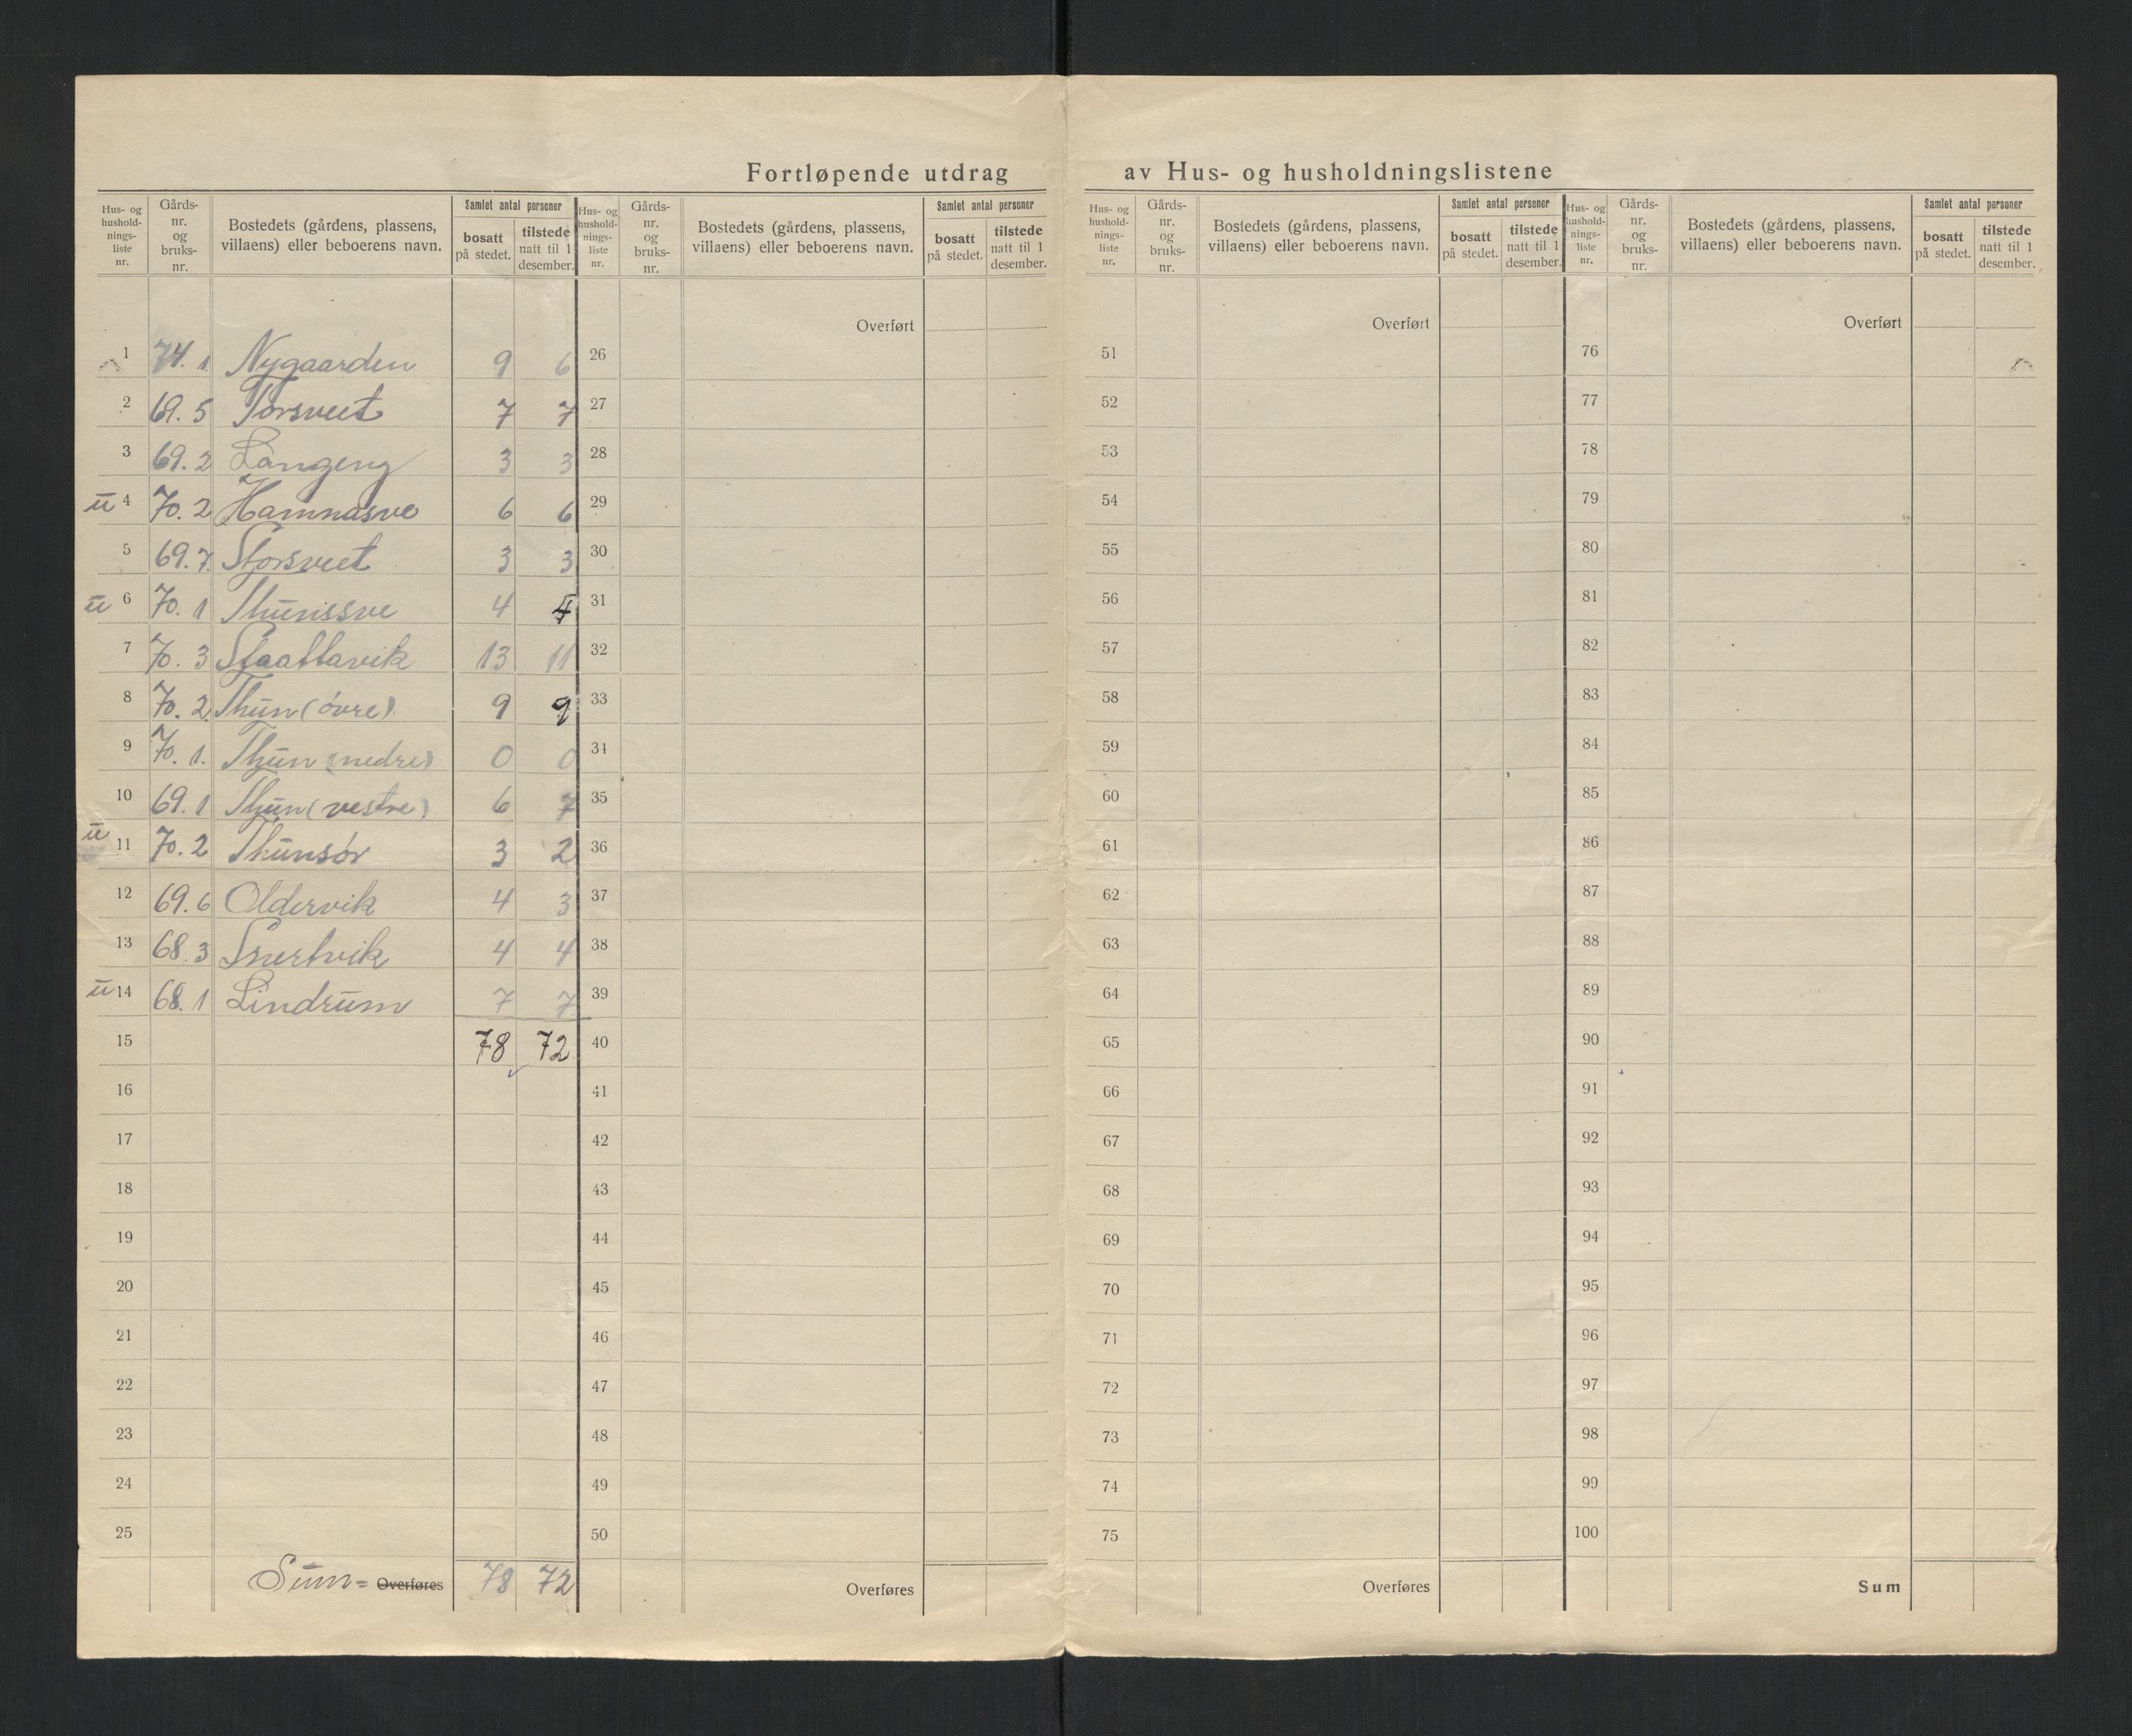 Fortløpende utdrag av Hus- og husholdningslistene
Hus- og hushold- nings- liste nr. Gårds- nr. og bruks- nr. Bostedets (gårdens, plassens, villaens) eller beboerens navn. Samlet antal personer bosatt på stedet. tilstede natt til 1 desember.
1 74. 1 Nygaarden 9 6
2 69. 5 Torsveet 7 7
3 69. 2 Langeng 3 3
ū 4 70. 2 Hamnasve 6 6
5 69. 7. Storsveet 3 3
ū 6 70. 1 Thunssve 4 4
7 70. 3 Slaattavik 13 11
8 70. 2. Thun (övre) 9 9
9 70. 1. Thun (nedre) 0 0
10 69. 1 Thun (vestre) 6 7
ū 11 70. 2 Thunsör 3 2
12 69. 6 Oldervik 4 3
13 68. 3 Snertvik 4 4
ū 14 68. 1 Lindrum 7 7
15 78 72
16
17
18
19
20
21
22
23
24
25
Sum = Overføres 78 72
Hus- og hushold- nings- liste nr. Gårds- nr. og bruks- nr. Bostedets (gårdens, plassens, villaens) eller beboerens navn. Samlet antal personer bosatt på stedet. tilstede natt til 1 desember.
Overført
26
27
28
29
30
31
32
33
34
35
36
37
38
39
40
41
42
43
44
45
46
47
48
49
50
Overføres
Hus- og hushold- nings- liste nr. Gårds- nr. og bruks- nr. Bostedets (gårdens, plassens, villaens) eller beboerens navn. Samlet antal personer bosatt på stedet. tilstede natt til 1 desember.
Overført
51
52
53
54
55
56
57
58
59
60
61
62
63
64
65
66
67
68
69
70
71
72
73
74
75
Overføres
Hus- og hushold- nings- liste nr. Gårds- nr. og bruks- nr. Bostedets (gårdens, plassens, villaens) eller beboerens navn. Samlet antal personer bosatt på stedet. tilstede natt til 1 desember.
Overført
76
77
78
79
80
81
82
83
84
85
86
87
88
89
90
91
92
93
94
95
96
97
98
99
100
Sum